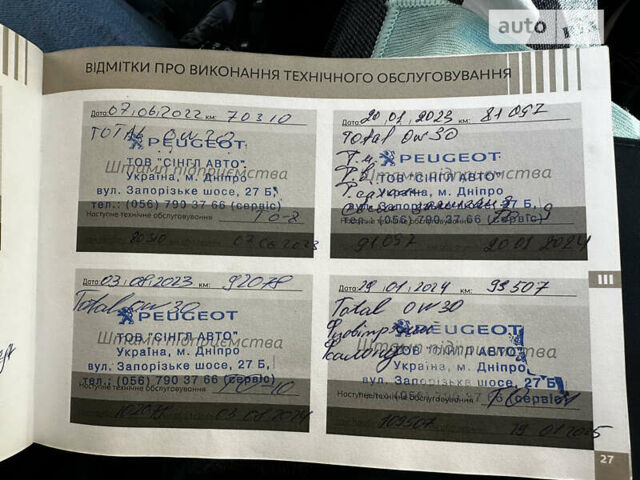 auto
ВІДМІТКИ ПРО ВИКОНАННЯ ТЕХНІЧНОГО ОБСЛУГОВУВАННЯ
Дата: 07.06.2022 км: 70310
TOTAL 0W30
PEUGEOT
Штамп підприємства
ТОВ "СІНГЛ АВТО"
Україна, м. Дніпро
вул. Запорізьке шосе, 27 Б,
тел.: (056) 790 37 66 (сервіс)
Наступне технічне обслуговування ТО-8
80310 07.06.2023
Дата: 20.01.2023 км: 81097
Total 0w30
Т.м.
PEUGEOT
Штамп підприємства
Т.в.
ТОВ "СІНГЛ АВТО"
Україна, м. Дніпро
вул. Запорізьке шосе, 27 Б,
тел.: (056) 790 37 66 (сервіс)
Наступне технічне обслуговування 9
91097 20.01.2024
Дата: 03.08.2023 км: 92078
Total 0W30
PEUGEOT
Штамп підприємства
ТОВ "СІНГЛ АВТО"
Україна, м. Дніпро
вул. Запорізьке шосе, 27 Б,
тел.: (056) 790 37 66 (сервіс)
Наступне технічне обслуговування ТО-10
102078 03.08.2024
Дата: 19.01.2024 км: 99507
Total 0W30
PEUGEOT
Штамп підприємства
салону
ТОВ "СІНГЛ АВТО"
Україна, м. Дніпро
Запорізьке шосе, 27 Б,
Наступне технічне обслуговування
(056) 790 37 66 (сервіс)
109507 19.01.2025
III
27